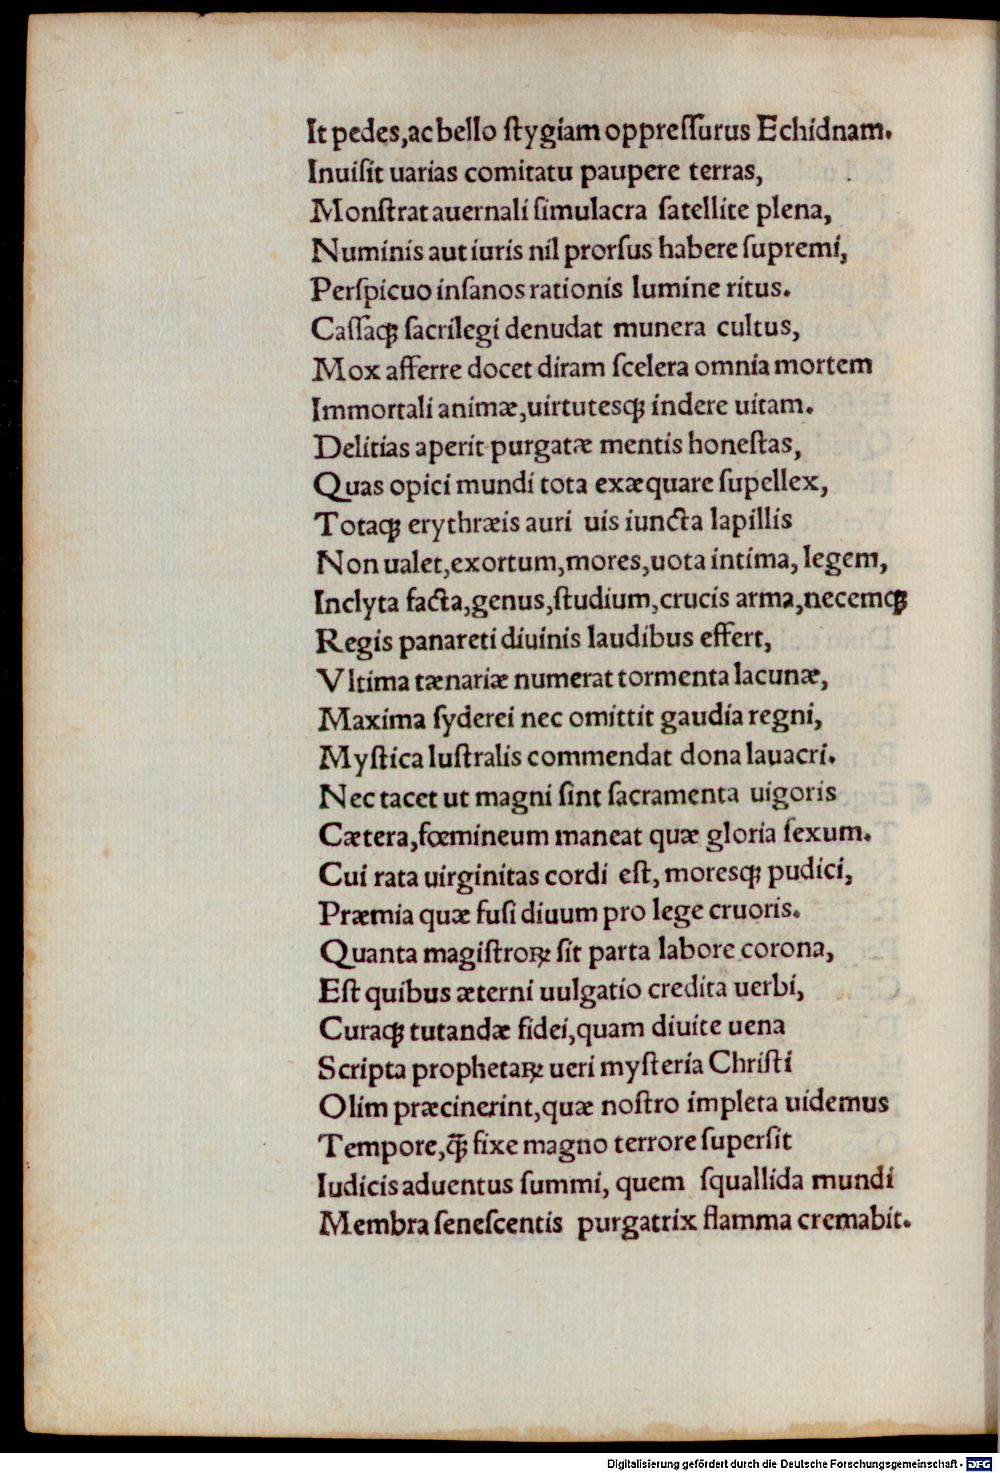 It pedes,ac bello ſtygiam oppreſſurus Echidnam.
Inuiſit uarias comitatu paupere terras,
Monſtrat auernali ſimulacra ſatellite plena,
Numinis aut iuris nil prorſus habere ſupremi,
Perſpicuo inſanos rationis lumine ritus.
Caſſaqꝫ ſacrilegi denudat munera cultus,
Mox afferre docet diram ſcelera omnia mortem
Immortali animæ,uirtuteſqꝫ indere uitam.
Delitias aperit purgatæ mentis honeſtas,
Quas opici mundi tota exæquare ſupellex,
Totaqꝫ erythræis auri uis iuncta lapillis
Non ualet,exortum,mores,uota intima, legem,
Inclyta facta,genus,ſtudium,crucis arma,necemqꝫ
Regis panareti diuinis laudibus effert,
Vltima tænariæ numerat tormenta lacunæ,
Maxima ſyderei nec omittit gaudia regni,
Myſtica luſtralis commendat dona lauacri.
Nec tacet ut magni ſint ſacramenta uigoris
Cætera,fœmineum maneat quæ gloria ſexum.
Cui rata uirginitas cordi eſt, moreſqꝫ pudici,
Præmia quæ fuſi diuum pro lege cruoris.
Quanta magiſtroꝝ ſit parta labore corona,
Eſt quibus æterni uulgatio credita uerbi,
Curaqꝫ tutandæ fidei,quam diuite uena
Scripta prophetaꝝ ueri myſteria Chriſti
Olim præcinerint,quæ noſtro impleta uidemus
Tempore,q̃ꝫ fixe magno terrore ſuperſit
Iudicis aduentus ſummi, quem ſquallida mundi
Membra ſeneſcentis purgatrix flamma cremabit.
Digitalisierung gefördert durch die Deutsche Forschungsgemeinschaft - DFG